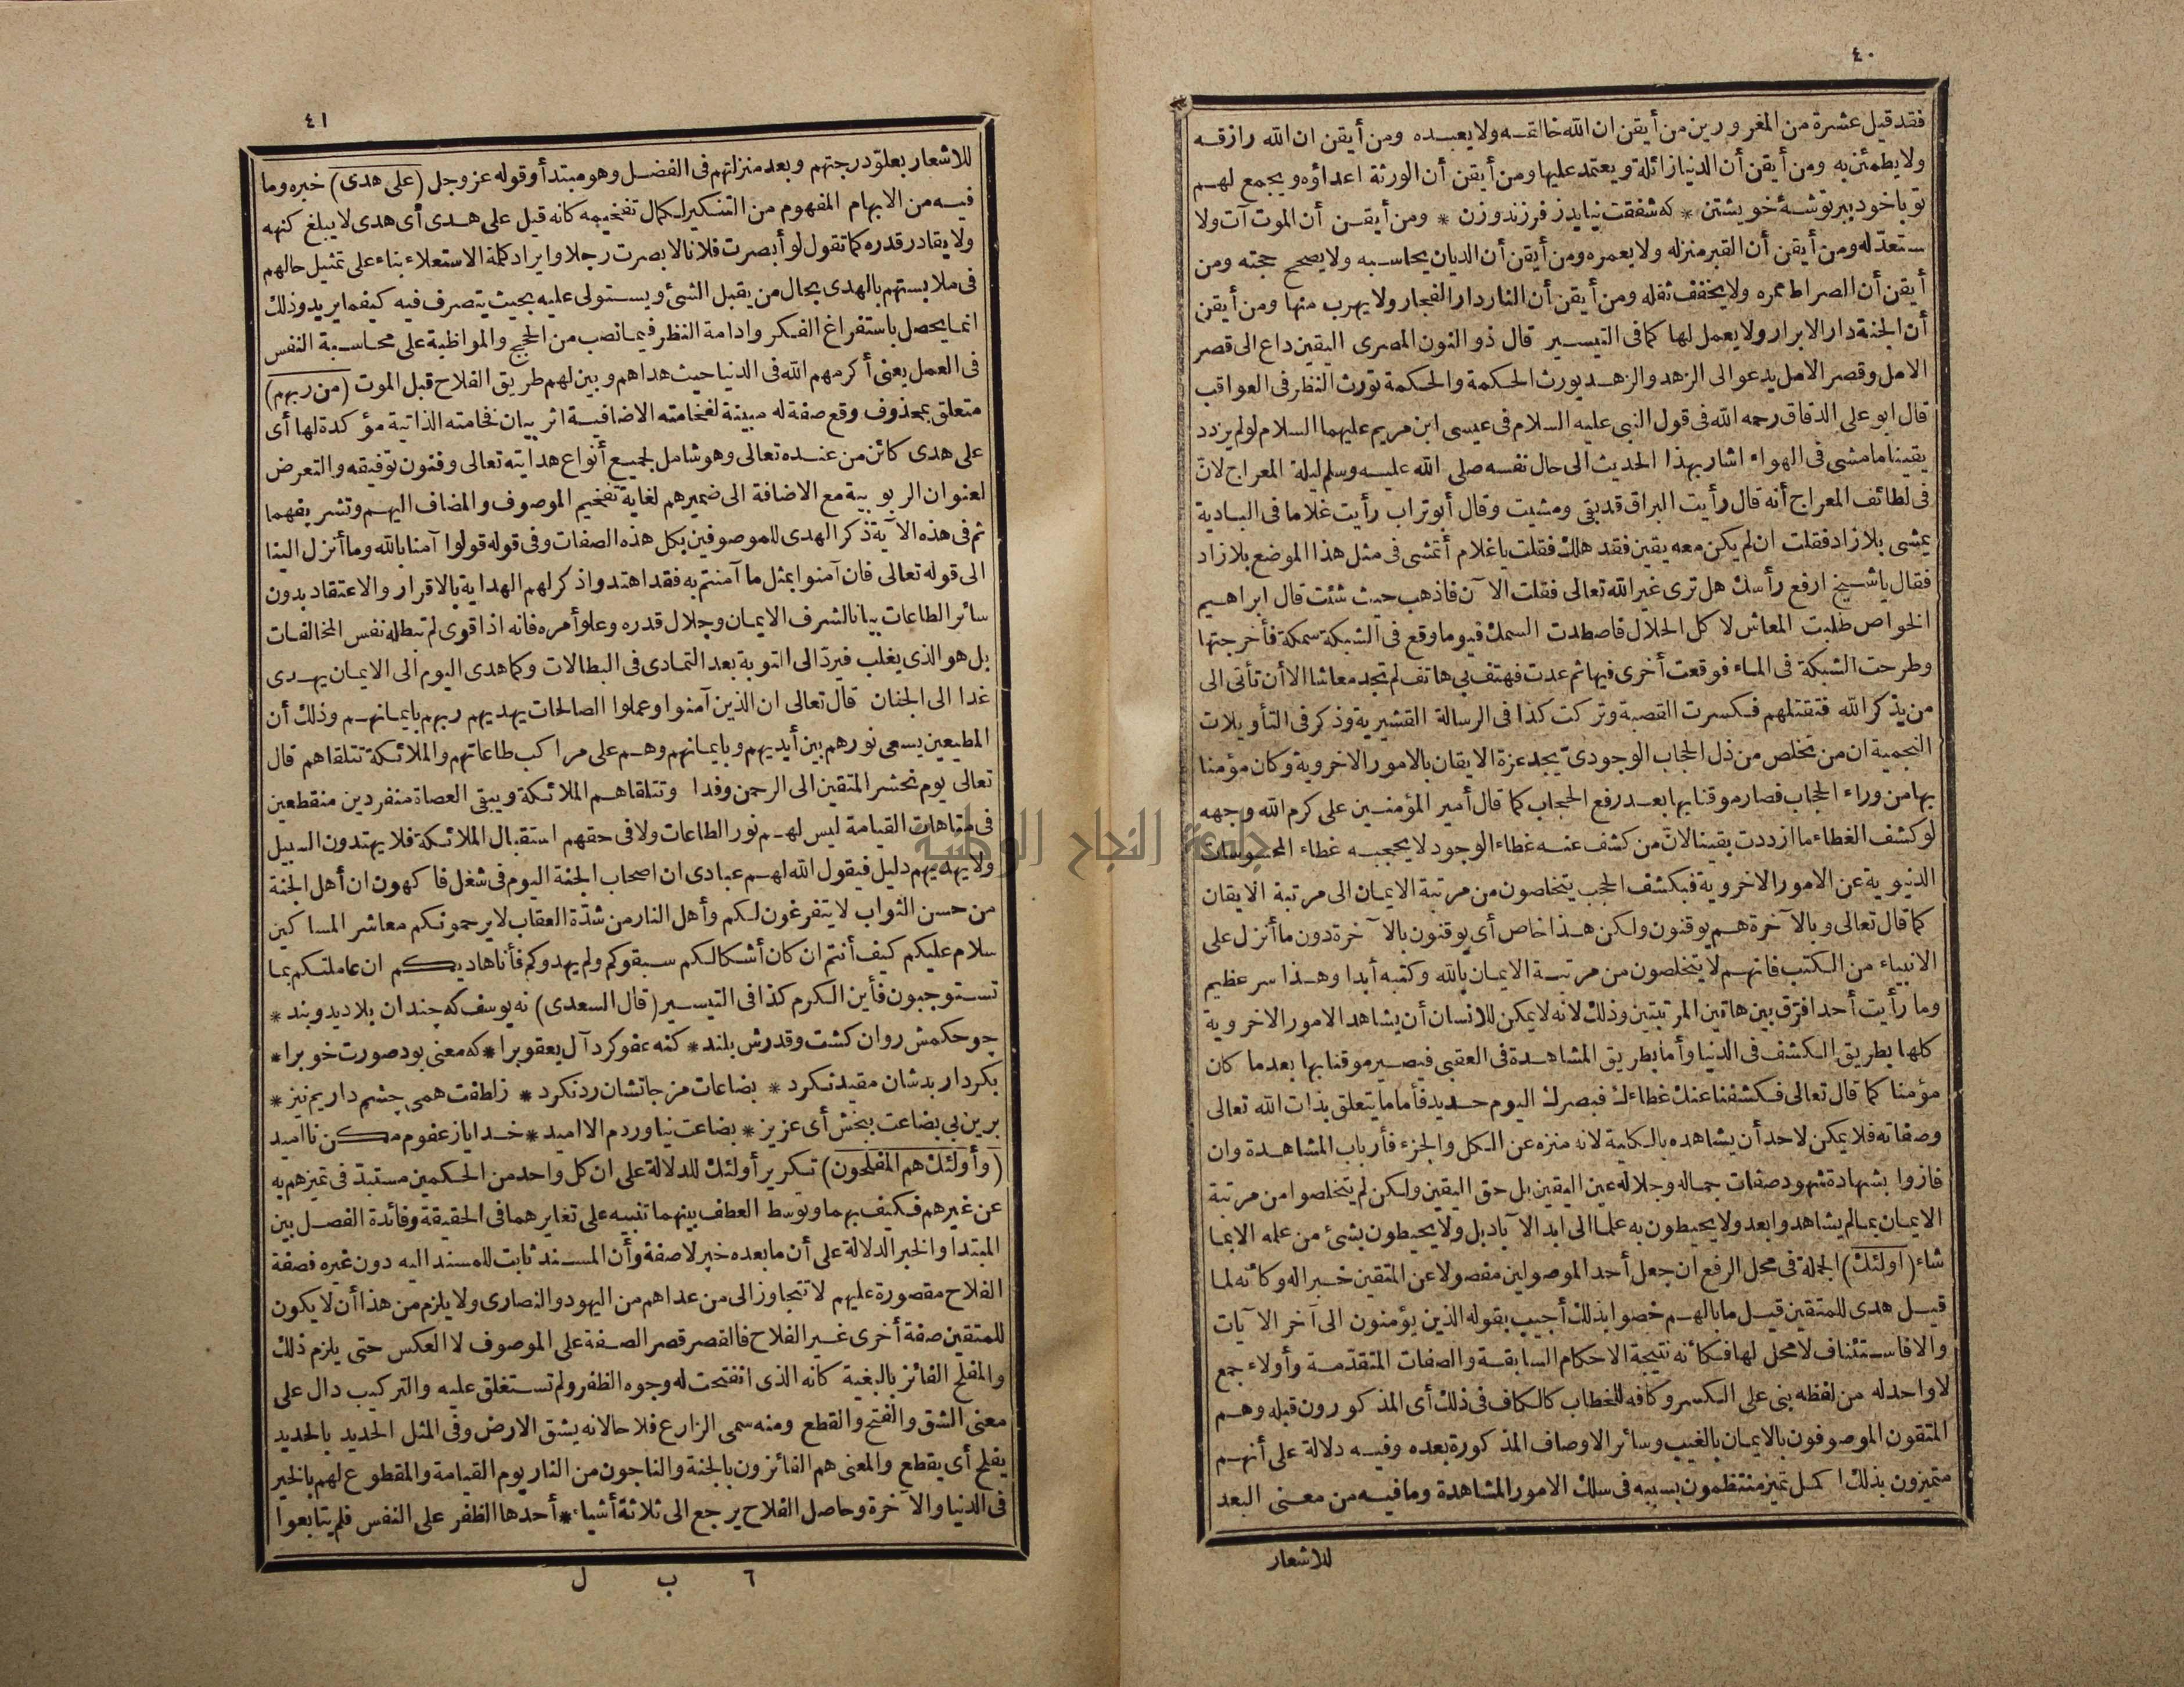 ٤٠
فقد قيل عشرة من المغرورين من أيقن ان الله خالقه ولا يعبده ومن أيقن ان الله رازقه
ولا يطمئن به ومن أيقن أن الدنيا زائلة ويعتمد عليها ومن أيقن أن الورثة اعداؤه ويجمع لهم
تو با خود ببر توشهٔ خويشتن * كه شفقت نيايد ز فرزند و زن * ومن أيقن أن الموت آت ولا
ستعدّ له ومن أيقن أن القبر منزله ولا يعمره ومن أيقن أن الديان يحاسبه ولا يصحح حجته ومن
أيقن أن الصراط ممره ولا يخفف ثقله ومن أيقن أن النار دار الفجار ولا يهرب منها ومن أيقن
أن الجنة دار الابرار ولا يعمل لها كما فى التيسير قال ذو النون المصرى اليقين داع الى قصر
الامل وقصر الامل يدعو الى الزهد والزهد يورث الحكمة والحكمة تورث النظر فى العواقب
قال ابو على الدقاق رحمه الله فى قول النبى عليه السلام فى عيسى ابن مريم عليهما السلام لو لم يزدد
يقينا ما مشى فى الهواء اشار بهذا الحديث الى حال نفسه صلى الله عليه وسلم ليلة المعراج لانّ
فى لطائف المعراج أنه قال رأيت البراق قد بقى ومشيت وقال أبو تراب رأيت غلاما فى البادية
يمشى بلا زاد فقلت ان لم يكن معه يقين فقد هلك فقلت يا غلام أتمشى فى مثل هذا الموضع بلا زاد
فقال يا شيخ ارفع رأسك هل ترى غير الله تعالى فقلت الآن فاذهب حيث شئت قال ابراهيم
الخواص طلبت المعاش لاكل الحلال فاصطدت السمك فيوما وقع فى الشبكة سمكة فأخرجتها
وطرحت الشبكة فى الماء فوقعت أخرى فيها ثم عدت فهتف بى هاتف لم تجد معاشا الا أن تأتى الى
من يذكر الله فتقتلهم فكسرت القصبة وتركت كذا فى الرسالة القشيرية وذكر فى التأويلات
النجمية ان من تخلص من ذل الحجاب الوجودىّ يجد عزة الايقان بالامور الاخروية وكان مؤمنا
بها من وراء الحجاب فصار موقنا بها بعد رفع الحجاب كما قال أمير المؤمنين على كرم الله وجهه
لو كشف الغطاء ما ازددت يقينا لانّ من كشف عنه غطاء الوجود لا يحجبه غطاء المحسوسات
الدنيوية عن الامور الاخروية فبكشف الحجب يتخلصون من مرتبة الايمان الى مرتبة الايقان
كما قال تعالى وبالآخرة هم يوقنون ولكن هذا خاص أى يوقنون بالآخرة دون ما أنزل على
الانبياء من الكتب فانهم لا يتخلصون من مرتبة الايمان بالله وكتبه أبدا وهذا سر عظيم
وما رأيت أحدا فرّق بين هاتين المرتبتين وذلك لانه لا يمكن للانسان أن يشاهد الامور الاخروية
كلها بطريق الكشف فى الدنيا وأما بطريق المشاهدة فى العقبى فيصير موقنا بها بعد ما كان
مؤمنا كما قال تعالى فكشفنا عنك غطاءك فبصرك اليوم حديد فأما ما يتعلق بذات الله تعالى
وصفاته فلا يمكن لاحد أن يشاهده بالكلية لانه منزه عن الكل والجزء فأرباب المشاهدة وان
فازوا بشهادة شهود صفات جماله وجلاله عين اليقين بل حق اليقين ولكن لم يتخلصوا من مرتبة
الايمان بما لم يشاهدوا بعد ولا يحيطون به علما الى ابد الآباد بل ولا يحيطون بشئ من علمه الا بما
شاء (اولئك) الجملة فى محل الرفع ان جعل أحد الموصولين مفصولا عن المتقين خبر اله وكأنه لما
قيل هدى للمتقين قيل ما بالهم خصوا بذلك أجيب بقوله الذين يؤمنون الى آخر الآيات
والا فاستئناف لا محل لها فكأنه نتيجة الاحكام السابقة والصفات المتقدّمة وأولاء جمع
لا واحد له من لفظه بنى على الكسر وكافه للخطاب كالكاف فى ذلك أى المذكورون قبله وهم
المتقون الموصوفون بالايمان بالغيب وسائر الاوصاف المذكورة بعده وفيه دلالة على أنهم
متميزون بذلك اكمل تميز منتظمون بسببه فى سلك الامور المشاهدة وما فيه من معنى البعد
للاشعار
٤١
للاشعار بعلوّ درجتهم وبعد منزلتهم فى الفضل وهو مبتدأ وقوله عز وجل (على هدى) خبره وما
فيه من الابهام المفهوم من التنكير لكمال تفخيمه كانه قيل على هدى أى هدى لا يبلغ كنهه
ولا يقادر قدره كما تقول لو أبصرت فلانا لابصرت رجلا وايراد كلمة الاستعلاء بناء على تمثيل حالهم
فى ملابستهم بالهدى بحال من يقبل الشئ ويستولى عليه بحيث يتصرف فيه كيفما يريد وذلك
انما يحصل باستفراغ الفكر وادامة النظر فيما نصب من الحجج والمواظبة على محاسبة النفس
فى العمل يعنى أكرمهم الله فى الدنيا حيث هداهم وبين لهم طريق الفلاح قبل الموت (من ربهم)
متعلق بمحذوف وقع صفة له مبينة لفخامته الاضافية اثر بيان فخامته الذاتية مؤكدة لها أى
على هدى كائن من عنده تعالى وهو شامل لجميع أنواع هدايته تعالى وفنون توفيقه والتعرض
لعنوان الربوبية مع الاضافة الى ضميرهم لغاية تفخيم الموصوف والمضاف اليهم وتشريفهما
ثم فى هذه الآية ذكر الهدى للموصوفين بكل هذه الصفات وفى قوله قولوا آمنا بالله وما أنزل الينا
الى قوله تعالى فان آمنوا بمثل ما آمنتم به فقد اهتدوا ذكر لهم الهداية بالاقرار والاعتقاد بدون
سائر الطاعات بيانا لشرف الايمان وجلال قدره وعلو أمره فانه اذا قوى لم تبطله نفس المخالفات
بل هو الذى يغلب فيردّ الى التوبة بعد التمادى فى البطالات وكما هدى اليوم الى الايمان يهدى
غدا الى الجنان قال تعالى ان الذين آمنوا وعملوا الصالحات يهديهم ربهم بايمانهم وذلك أن
المطيعين يسعى نورهم بين أيديهم وبايمانهم وهم على مراكب طاعاتهم والملائكة تتلقاهم قال
تعالى يوم نحشر المتقين الى الرحمن وفدا وتتلقاهم الملائكة ويبقى العصاة منفردين منقطعين
فى متاهات القيامة ليس لهم نور الطاعات ولا فى حقهم استقبال الملائكة فلا يهتدون السبيل
ولا يهديهم دليل فيقول الله لهم عبادى ان اصحاب الجنة اليوم فى شغل فاكهون ان أهل الجنة
من حسن الثواب لا يتفرغون لكم وأهل النار من شدّة العقاب لا يرحمونكم معاشر المساكين
سلام عليكم كيف أنتم ان كان أشكالكم سبقوكم ولم يهدوكم فأنا هاديكم ان عاملتكم بما
تستوجبون فأين الكرم كذا فى التيسير (قال السعدى) نه يوسف كه چندان بلا ديد وبند *
چو حكمش روان كشت وقدرش بلند * كنه عفو كرد آل يعقوبرا * كه معنى بود صورت خوبرا *
بكردار بدشان مقيد نكرد * بضاعات مزجاتشان رد نكرد * زلطفت همى چشم داريم نيز *
برين بى بضاعت ببخش أى عزيز * بضاعت نياوردم الا اميد * خدايا ز عفوم مكن نااميد
(وأولئك هم المفلحون) تكرير أولئك للدلالة على ان كل واحد من الحكمين مستبدّ فى تميزهم به
عن غيرهم فكيف بهما وتوسط العطف بينهما تنبيه على تغايرهما فى الحقيقة وفائدة الفصل بين
المبتدا والخبر الدلالة على أن ما بعده خبر لا صفة وأن المسند ثابت للمسند اليه دون غيره فصفة
الفلاح مقصورة عليهم لا تتجاوز الى من عداهم من اليهود والنصارى ولا يلزم من هذا أن لا يكون
للمتقين صفة أخرى غير الفلاح فالقصر قصر الصفة على الموصوف لا العكس حتى يلزم ذلك
والمفلح الفائز بالبغية كانه الذى انفتحت له وجوه الظفر ولم تستغلق عليه والتركيب دال على
معنى الشق والفتح والقطع ومنه سمى الزارع فلاحا لانه يشق الارض وفى المثل الحديد بالحديد
يفلح أى يقطع والمعنى هم الفائزون بالجنة والناجون من النار يوم القيامة والمقطوع لهم بالخير
فى الدنيا والآخرة وحاصل الفلاح يرجع الى ثلاثة أشياء * أحدها الظفر على النفس فلم يتابعوا
٦ ب ل
جامعة النجاح الوطنية